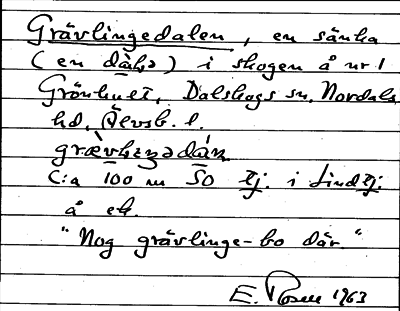 Grävlingedalen, en sänka
(en dälsə) i skogen å nr 1
Grönhult, Dalskogs sn, Nordals
hd, Älvsb. l.
C:a 100 m SO tj. i Lindtj:
å ek.
"Nog grävlinge-bo där."
E. Rosell 1963